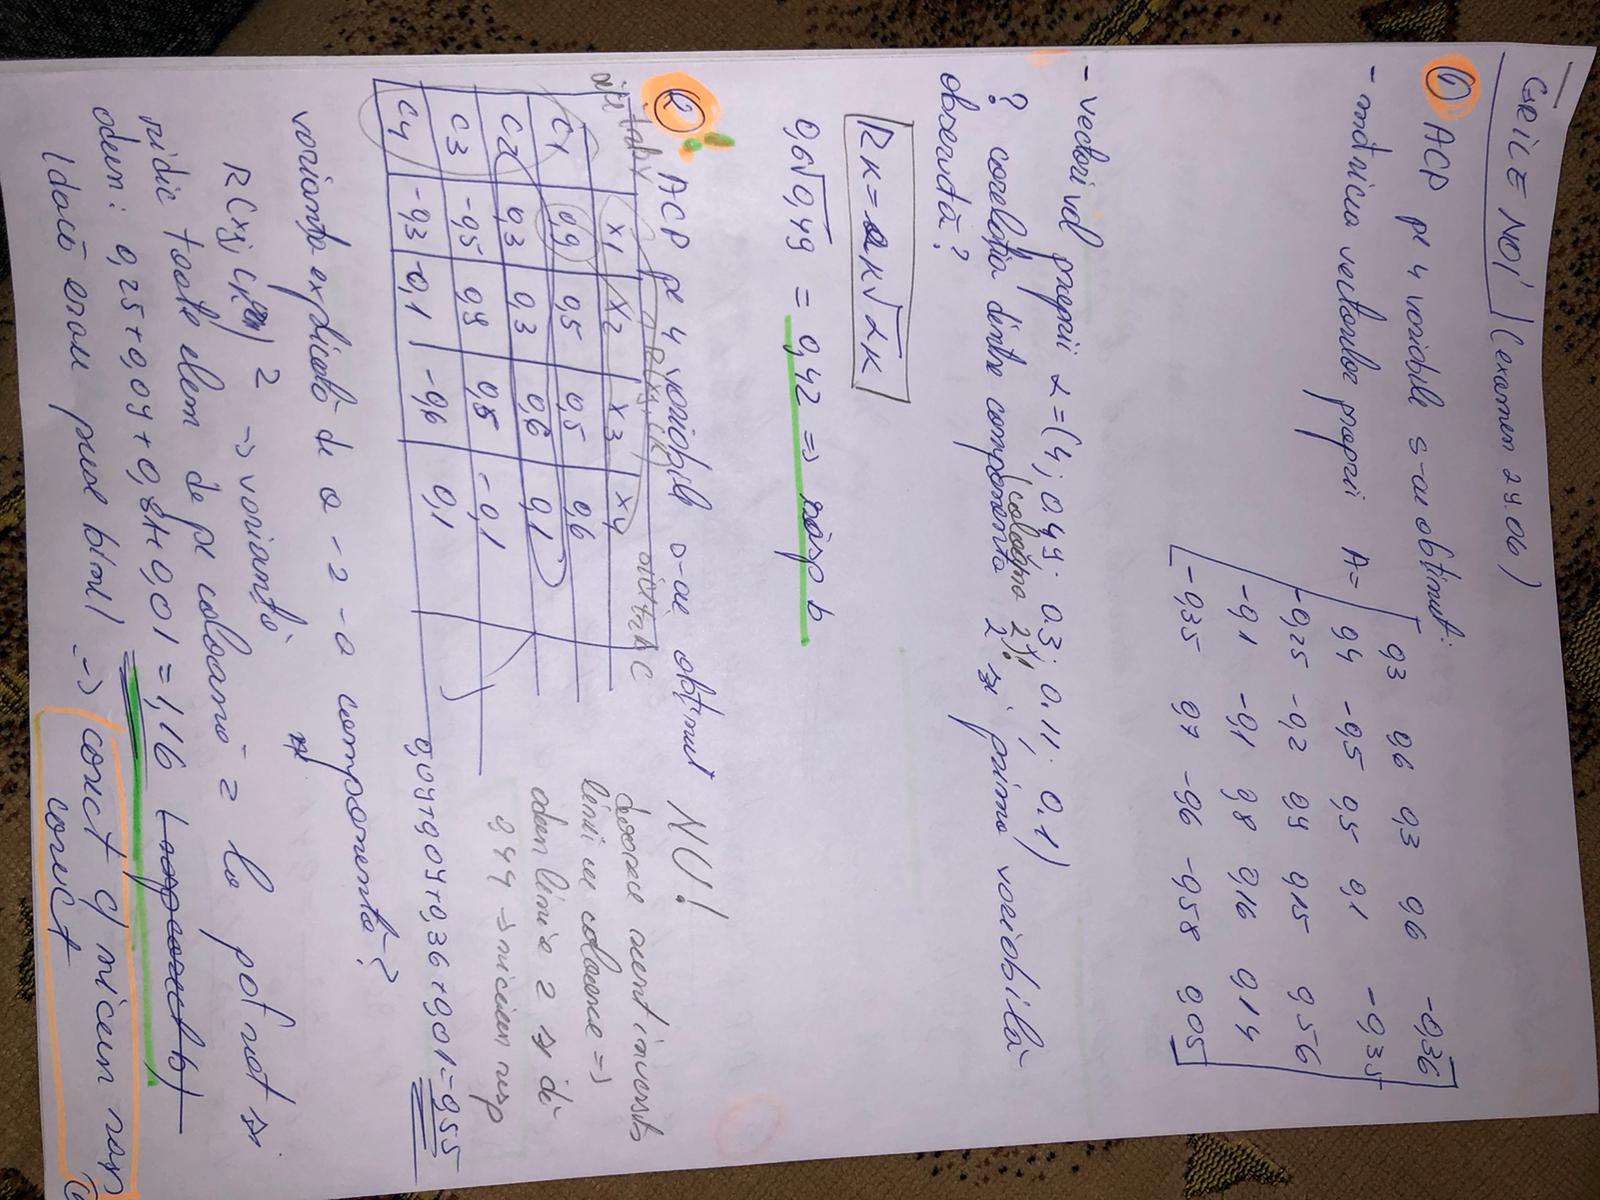 GRILE NOI (examen 24.06)
① ACP pe 4 variabile s-au obtinut:
- matricea vectorilor proprii A=
0,3 0,6 0,3 0,6 -0,36
0,4 -0,5 0,5 0,1 -0,35
-0,25 -0,2 0,4 0,15 0,556
-0,1 -0,1 0,8 0,16 0,14
-0,35 0,7 -0,6 -0,558 0,05
- vectori val proprii α=(4; 0,49; 0.3; 0.11; 0.1)
(coloana 2)!
? corelatia dintre componenta 2 si prima variabilă
observată?
Rk= ak√αk
0,6√0,49 = 0,42 => răsp b
② ACP pe 4 variabile s-au obtinut NU!
R(xj,ck)
x1 x2 x3 x4
C1 0,9 0,5 0,5 0,6
C2 0,3 0,3 0,6 0,1
C3 -0,5 0,9 0,5 -0,1
C4 -0,3 -0,1 -0,6 0,1
sunt inversate
linii cu coloane =>
adun linie 2 si dă
=> niciun resp
0,04+0,04+0,36+0,01=0,55
varianta explicată de a-2-a componenta?
R(xj, ck)² -> varianta
ridic toate elem de pe coloana 2 la patrat si
adun: 0,25+0,09+0,81+0,01=1,16 (rasp corect b)
(dacă eram puse bine) => corect c) niciun rasp
corect